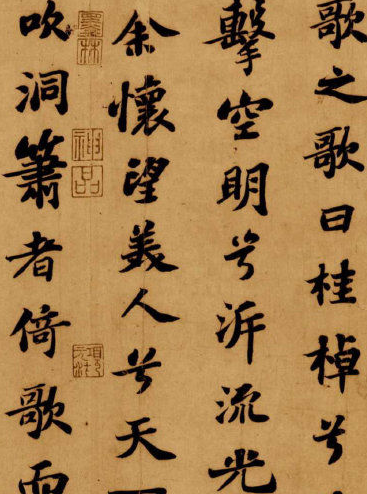 歌之歌曰桂棹兮
擊空明兮泝流光
余懷望美人兮天
吹洞簫者倚歌而
神品